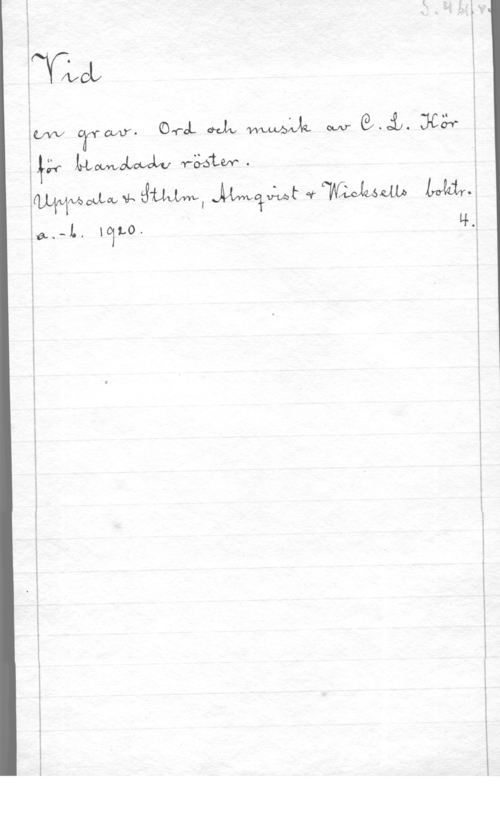 Vid
en grav. Ord och musik av C. L. Kör
för blandade röster.
Uppsala & Sthlm, Almqvist & Wicksells boktr.
a.-b. 1920. 4.